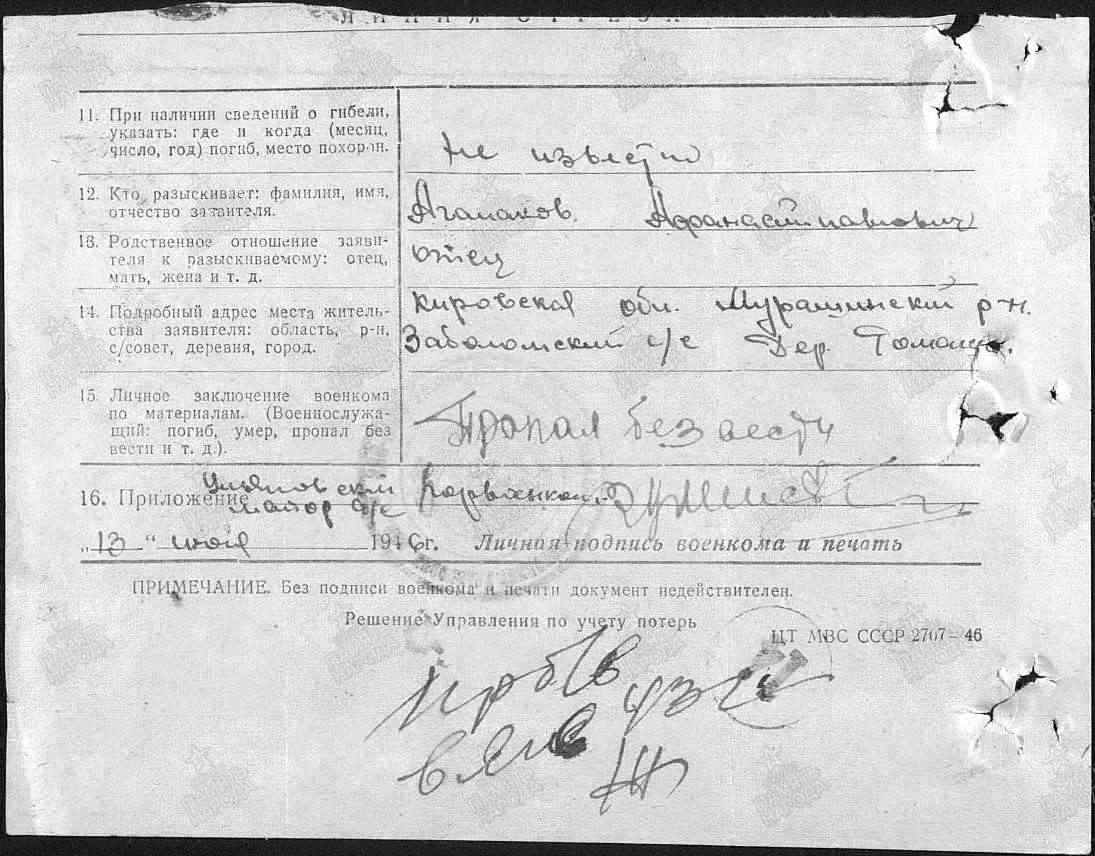 ЛИНИЯ ОТРЕЗА
11. При наличии сведений о гибели,
указать: где и когда (месяц,
число, год) погиб, место похорон.
Не известно
12. Кто разыскивает: фамилия, имя,
отчество заявителя.
Агалаков Афанасий Павлович
13. Родственное отношение заяви-
теля к разыскиваемому: отец,
мать, жена и т. д.
отец
14. Подробный адрес места житель-
ства заявителя: область, р-н,
с/совет, деревня, город.
Кировская обл. Мурашинский р-н.
с/с Дер.
15. Личное заключение военкома
по материалам. (Военнослужа-
щий: погиб, умер, пропал без
вести и т. д.).
Пропал без вести
16. Приложение
майор
„13" июля 1946г. Личная подпись военкома и печать
ПРИМЕЧАНИЕ. Без подписи военкома и печати документ недействителен.
Решение Управления по учету потерь
ЦТ МВС СССР 2707-46